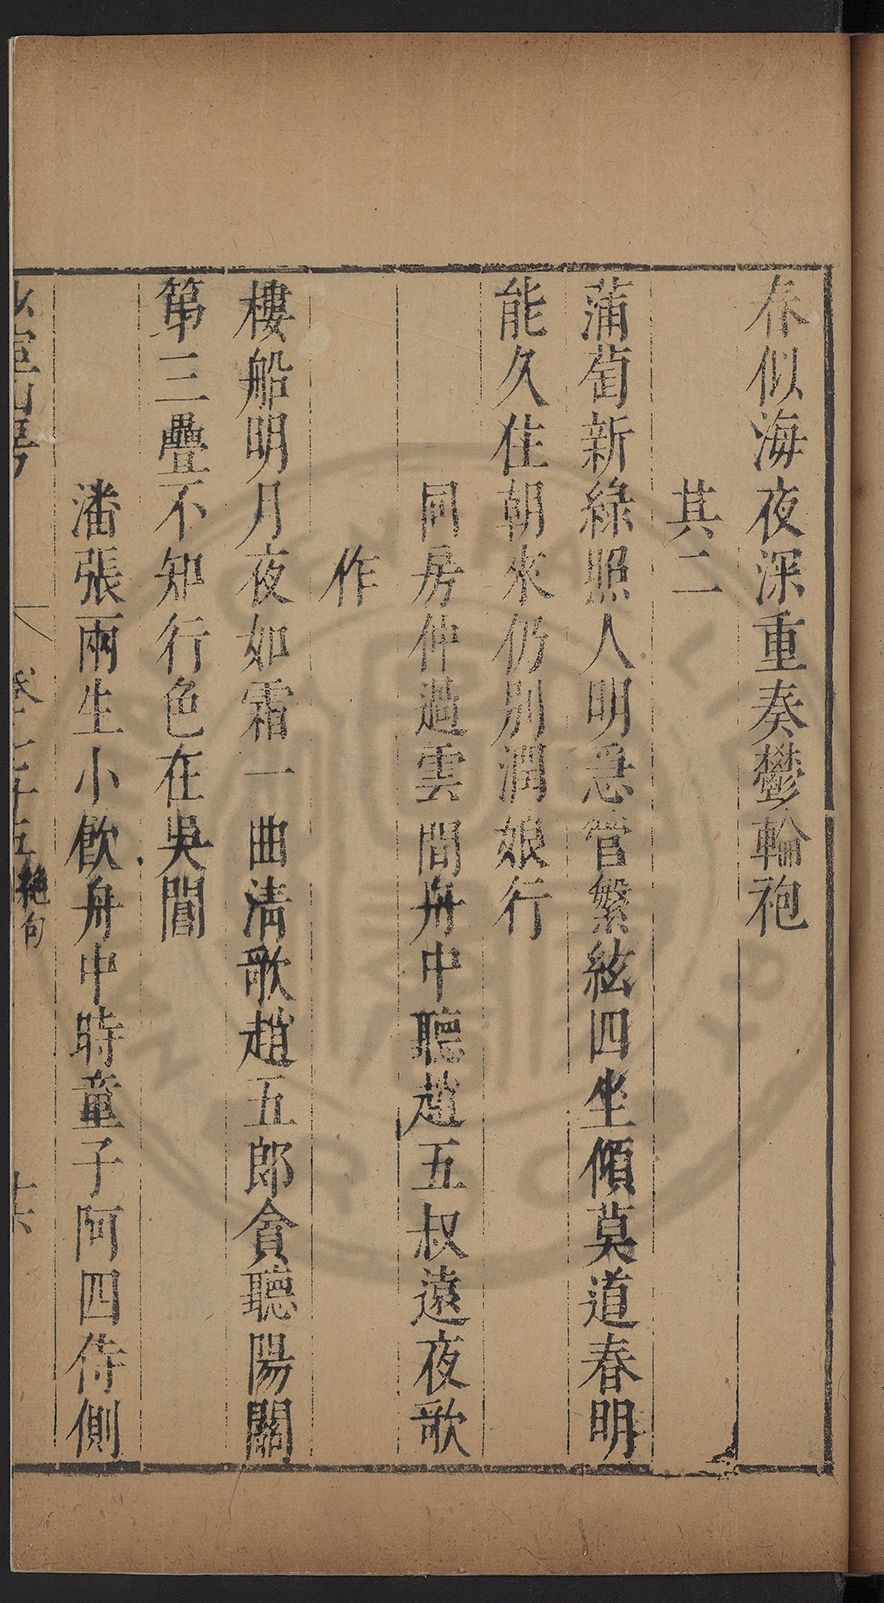 春似海夜深重奏鬱輪袍
其二
蒲萄新綠照人明急管繁絃四坐傾莫道春明
能久住朝來仍別潤娘行
同房仲過雲間舟中聽趙五叔遠夜歌
作
樓船明月夜如霜一曲清歌趙五郎貪聽陽關
第三疊不知行色在吳閶
潘張兩生小飲舟中時童子阿四侍側
山房
絶句